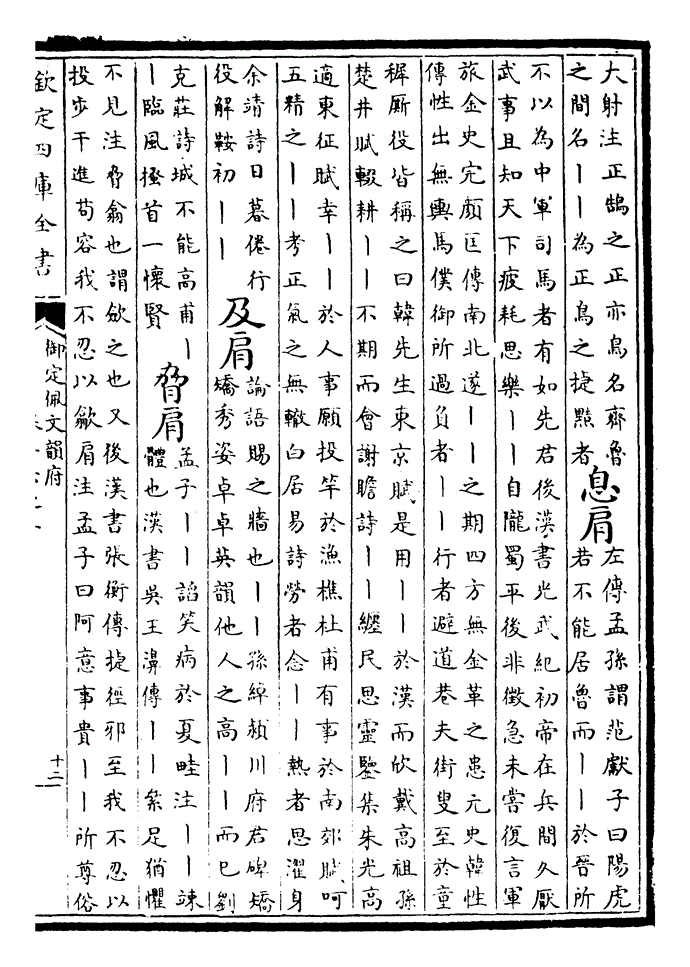 大射注正鵠之正亦鳥名齊魯
之間名丨丨為正鳥之捷黠者
息肩
左傳孟孫謂范獻子曰陽虎
若不能居魯而丨丨於晉所
不以為中軍司馬者有如先君後漢書光武紀初帝在兵間久厭
武事且知天下疲耗思樂丨丨自隴蜀平後非儆急未嘗復言軍
旅金史完顏匡傳南北遂丨丨之期四方無金革之患元史韓性
傳性出無輿馬僕御所過負者丨丨行者避道巷夫街叟至於童
穉厮役皆稱之曰韓先生東京賦是用丨丨於漢而欣戴高祖孫
楚井賦輟耕丨丨不期而會謝瞻詩丨丨纏民思靈鑒集朱光高
適東征賦幸丨丨於人事願投竿於漁樵杜甫有事於南郊賦呵
五精之丨丨考正氣之無轍白居易詩勞者念丨丨熱者思濯身
余靖詩日暮倦行
役解鞍初丨丨
及肩
論語賜之牆也丨丨孫綽潁川府君碑矯
矯秀姿卓卓英韻他人之高丨丨而已劉
克莊詩城不能高甫丨
丨臨風搔首一懷賢
脅肩
孟子丨丨諂笑病於夏畦注丨丨竦
體也漢書吳王濞傳丨丨絫足猶懼
不見注脅翕也謂斂之也又後漢書張衡傳捷徑邪至我不忍以
投步干進苟容我不忍以歙肩注孟子曰阿意事貴丨丨所尊俗
欽定四庫全書
御定佩文韻府
十二